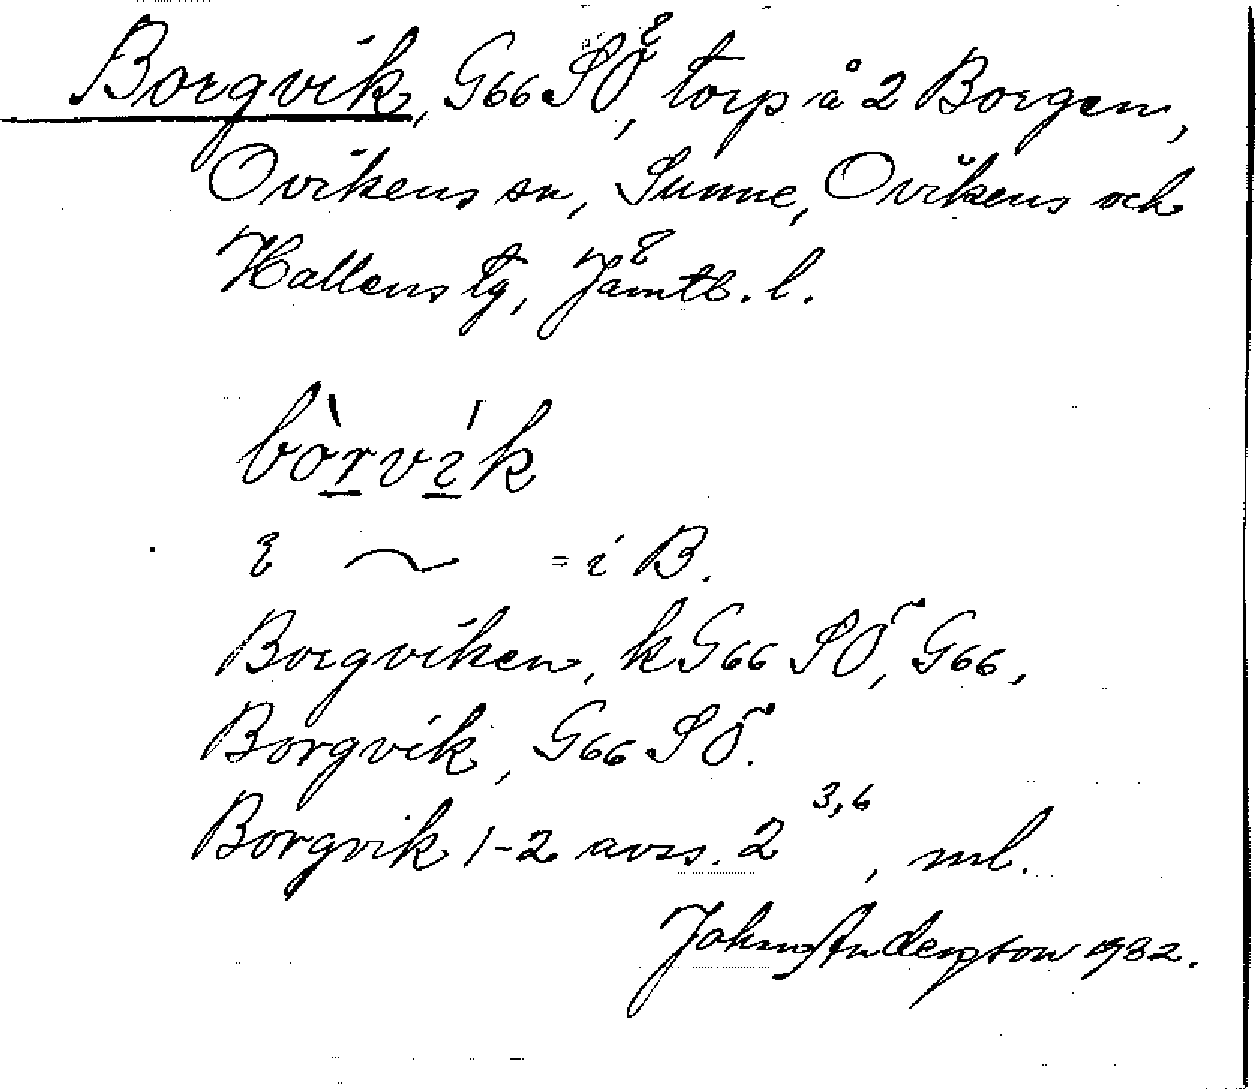 Borgvik, G66 SÖ, torp å 2 Borgen,
Ovikens sn, Sunne, Ovikens och
Hallens tg, Jämtl. l.
bòrvík
i ~ = i B.
Borgviken, kG66 SÖ, G66.
Borgvik, G66 SÖ.
Borgvik 1-2 avss. 2 3,6, ml.
John Anderson 1932.